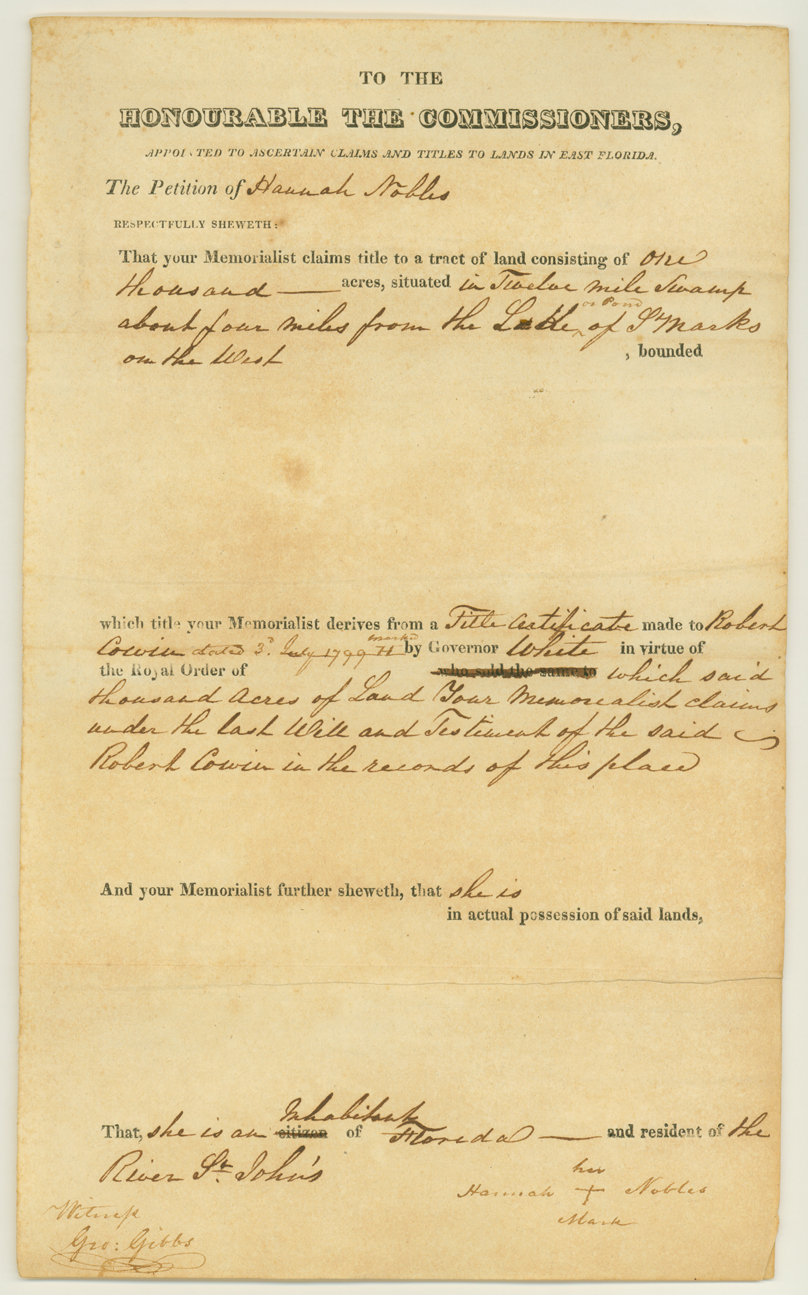 TO THE
HONOURABLE THE COMMISSIONERS,
APPOINTED TO ASCERTAIN CLAIMS AND TITLES TO LANDS IN EAST FLORIDA.
The Petition of Hannah Nobles
RESPECTFULLY SHEWETH:
That your Memorialist claims title to a tract of land consisting of one
thousand — acres, situated in Twelve mile Swamp
or Pond
about four miles from the of St Marks
on the West , bounded
which title your Memorialist derives from a Title Certificate made to Robert
marked
Cowin dated 3d July 1799 H by Governor White in virtue of
the Royal Order of who sold the same to which said
thousand Acres of Land Your Memorialist claims
under the last Will and Testiment of the said
Robert Cowin in the records of this place
And your Memorialist further sheweth, that she is
in actual possession of said lands,
Inhabitant
That, she is an citizen of Florida — and resident of the
River St. John's
her
Hannah + Nobles
Mark
Witness
Geo: Gibbs